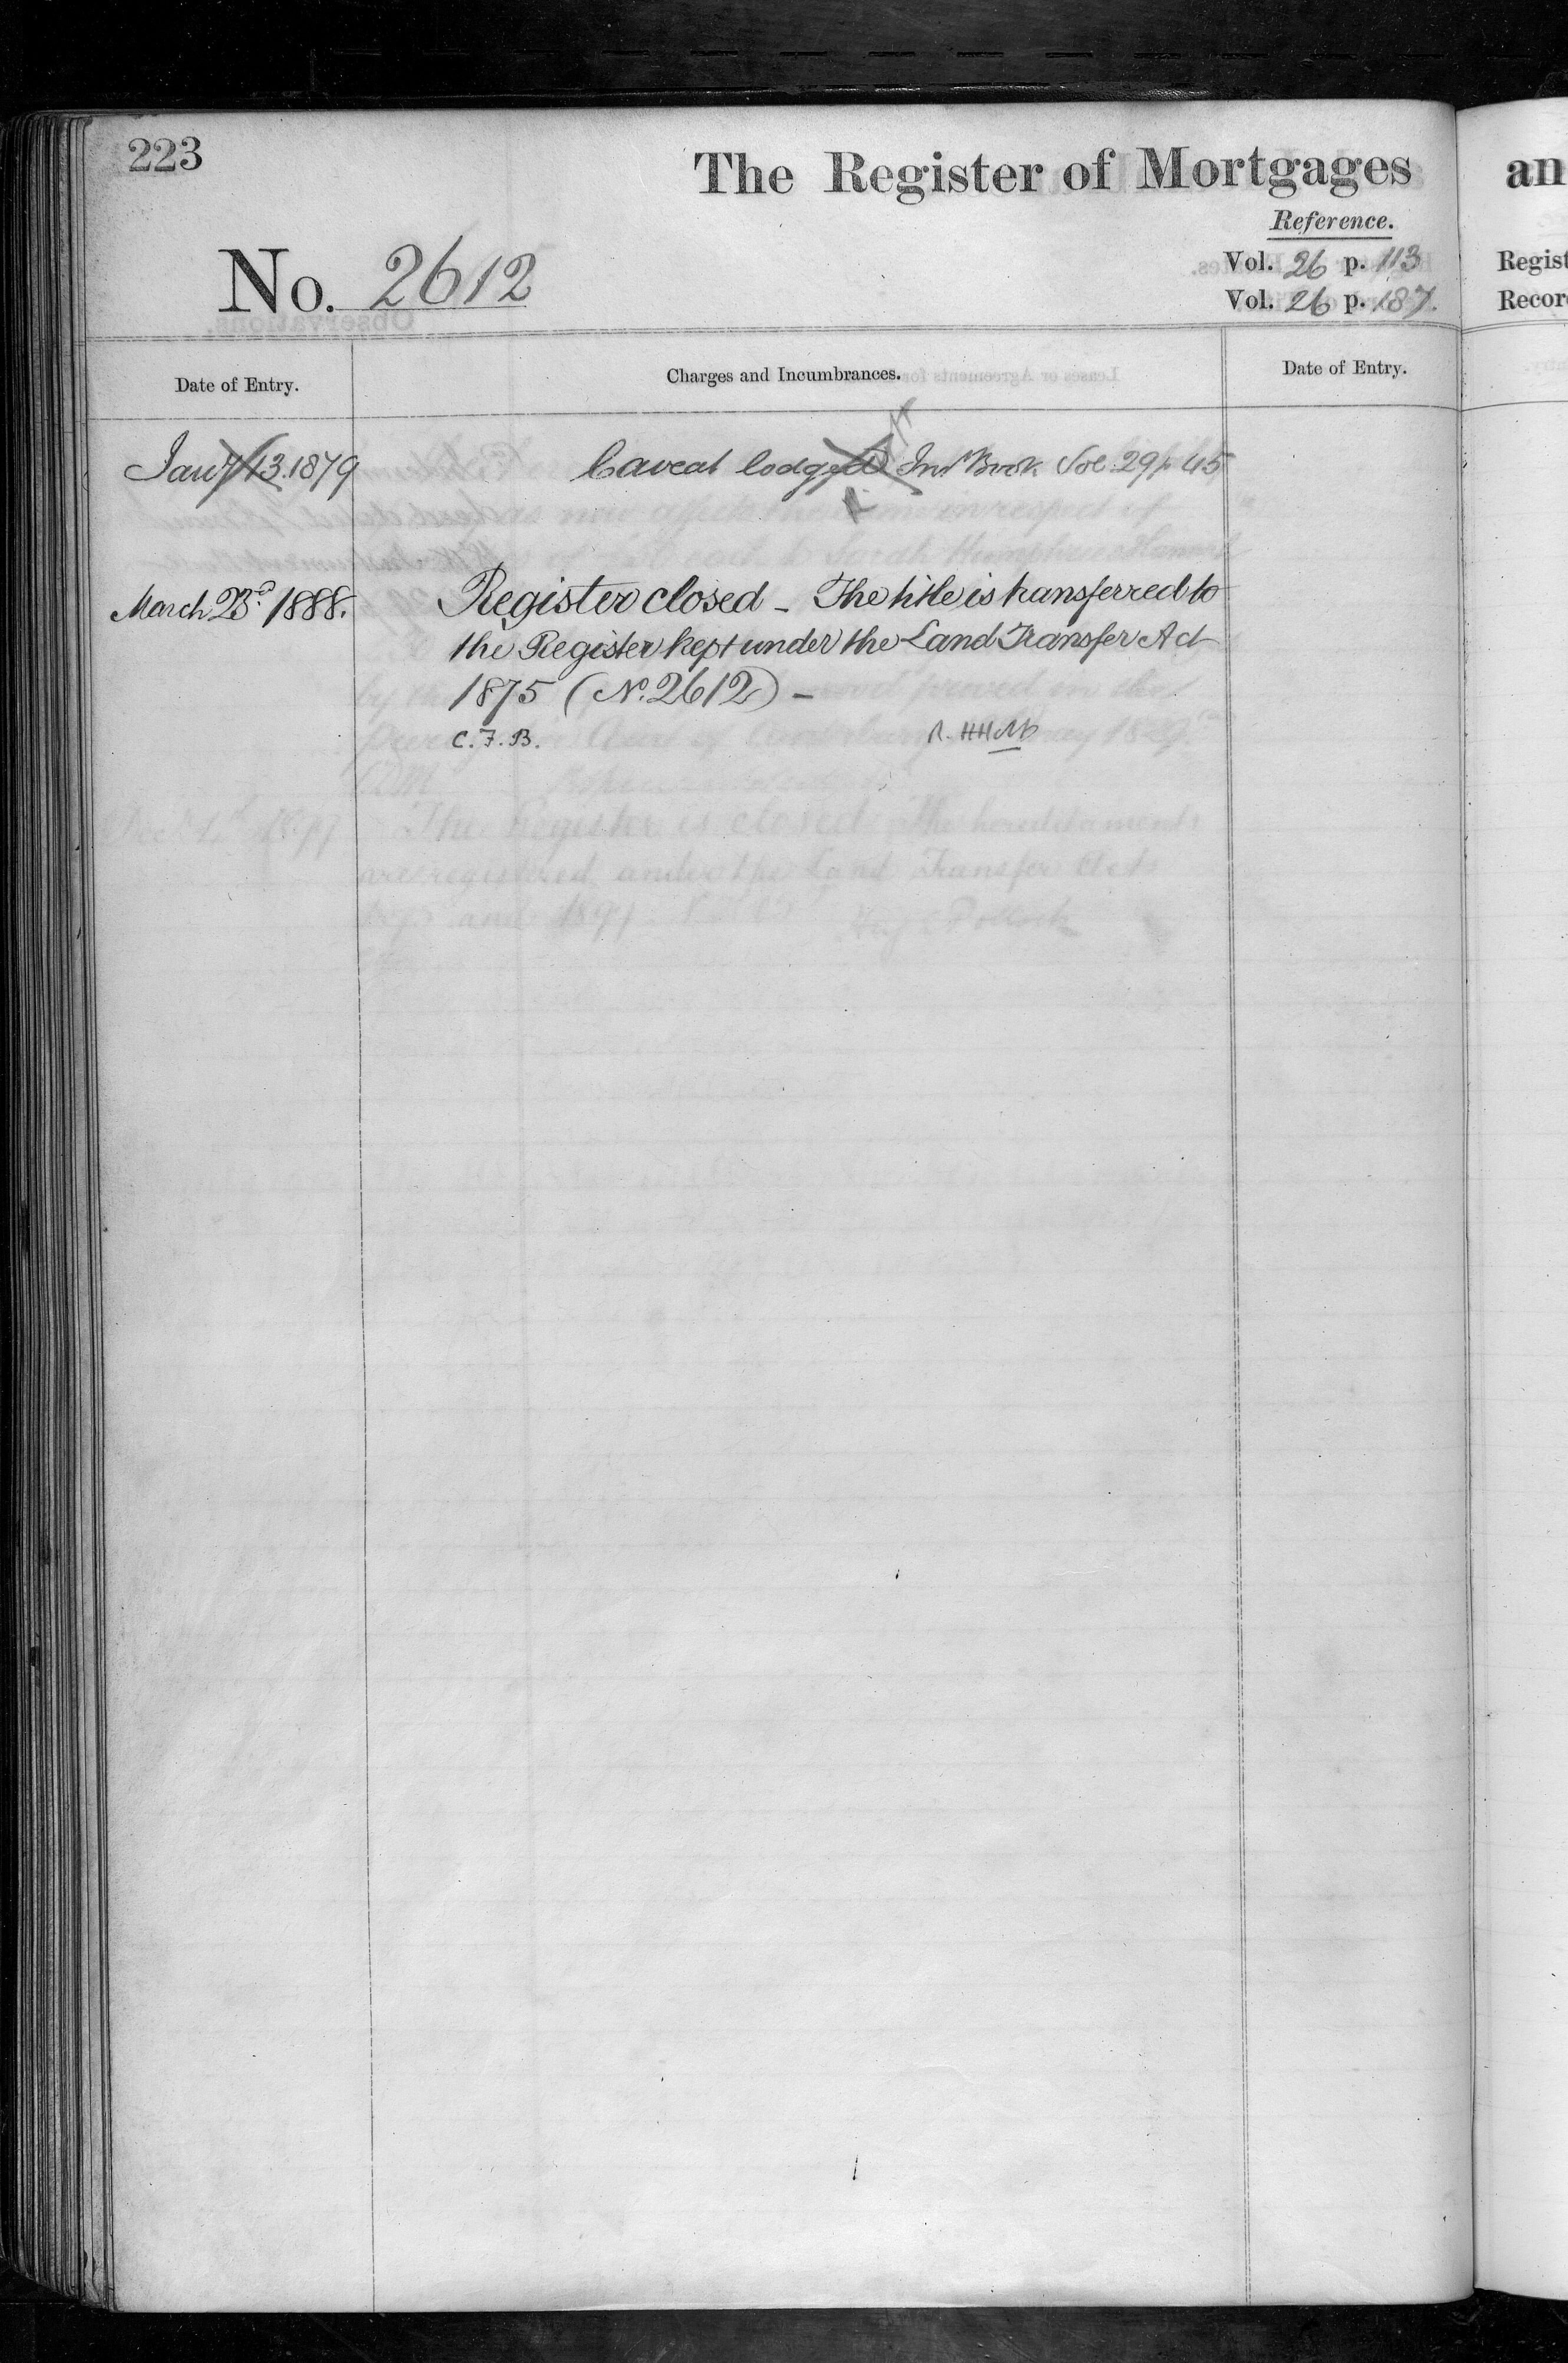 223
The Register of Mortgages
an
Reference.
No. 2612
Vol. 26 p. 113
Regist
Vol. 26 p. 187.
Recor
Date of Entry.
Charges and Incumbrances.
Date of Entry.
Jany 13. 1879
Caveat lodged Inst Book Vol 29 p 45
March 23d. 1888.
Register closed _ The title is transferred to
the Register kept under the Land Transfer Act
1875 (No. 2612) _
C. F. B.
R. HHM